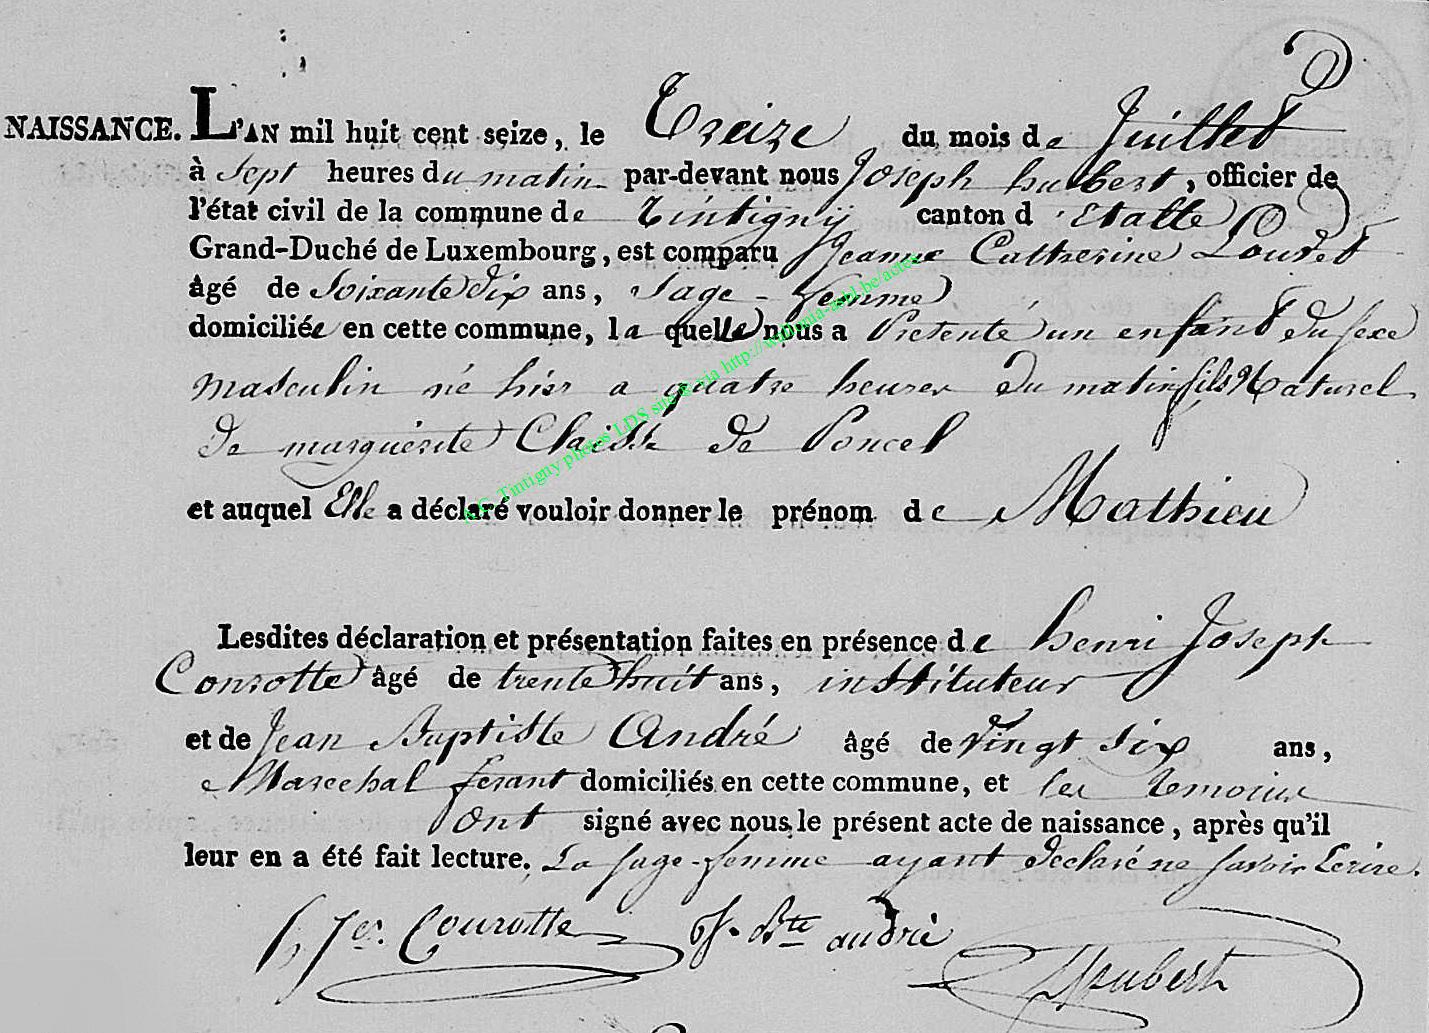 NAISSANCE. L'AN mil huit cent seize, le Treize du mois de Juillet
à Sept heures du matin par-devant nous Joseph hubert, officier de
l'état civil de la commune de Tintigny canton d'Etalle
Grand-Duché de Luxembourg, est comparu Jeanne Catherine
âgé de Soixante dix ans, Sage-femme
domiciliée en cette commune, la quelle nous a Presenté un enfant du sexe
masculin né hier a quatre heures du matin fils Naturel
de marguerite de Poncel
et auquel Elle a déclaré vouloir donner le prénom de Mathieu
Lesdites déclaration et présentation faites en présence de henri Joseph
Courotte âgé de trente huit ans, instituteur
et de Jean Baptiste André âgé de Vingt Six ans,
Marechal ferant domiciliés en cette commune, et les temoins
ont signé avec nous, le présent acte de naissance, après qu'il
leur en a été fait lecture. La sage-femme ayant declaré ne savoir Ecrire.
h. Jos. Courotte J. Bte andré JHubert
A.C. Tintigny photos LDS site & via http://wallonia-asbl.be/actes